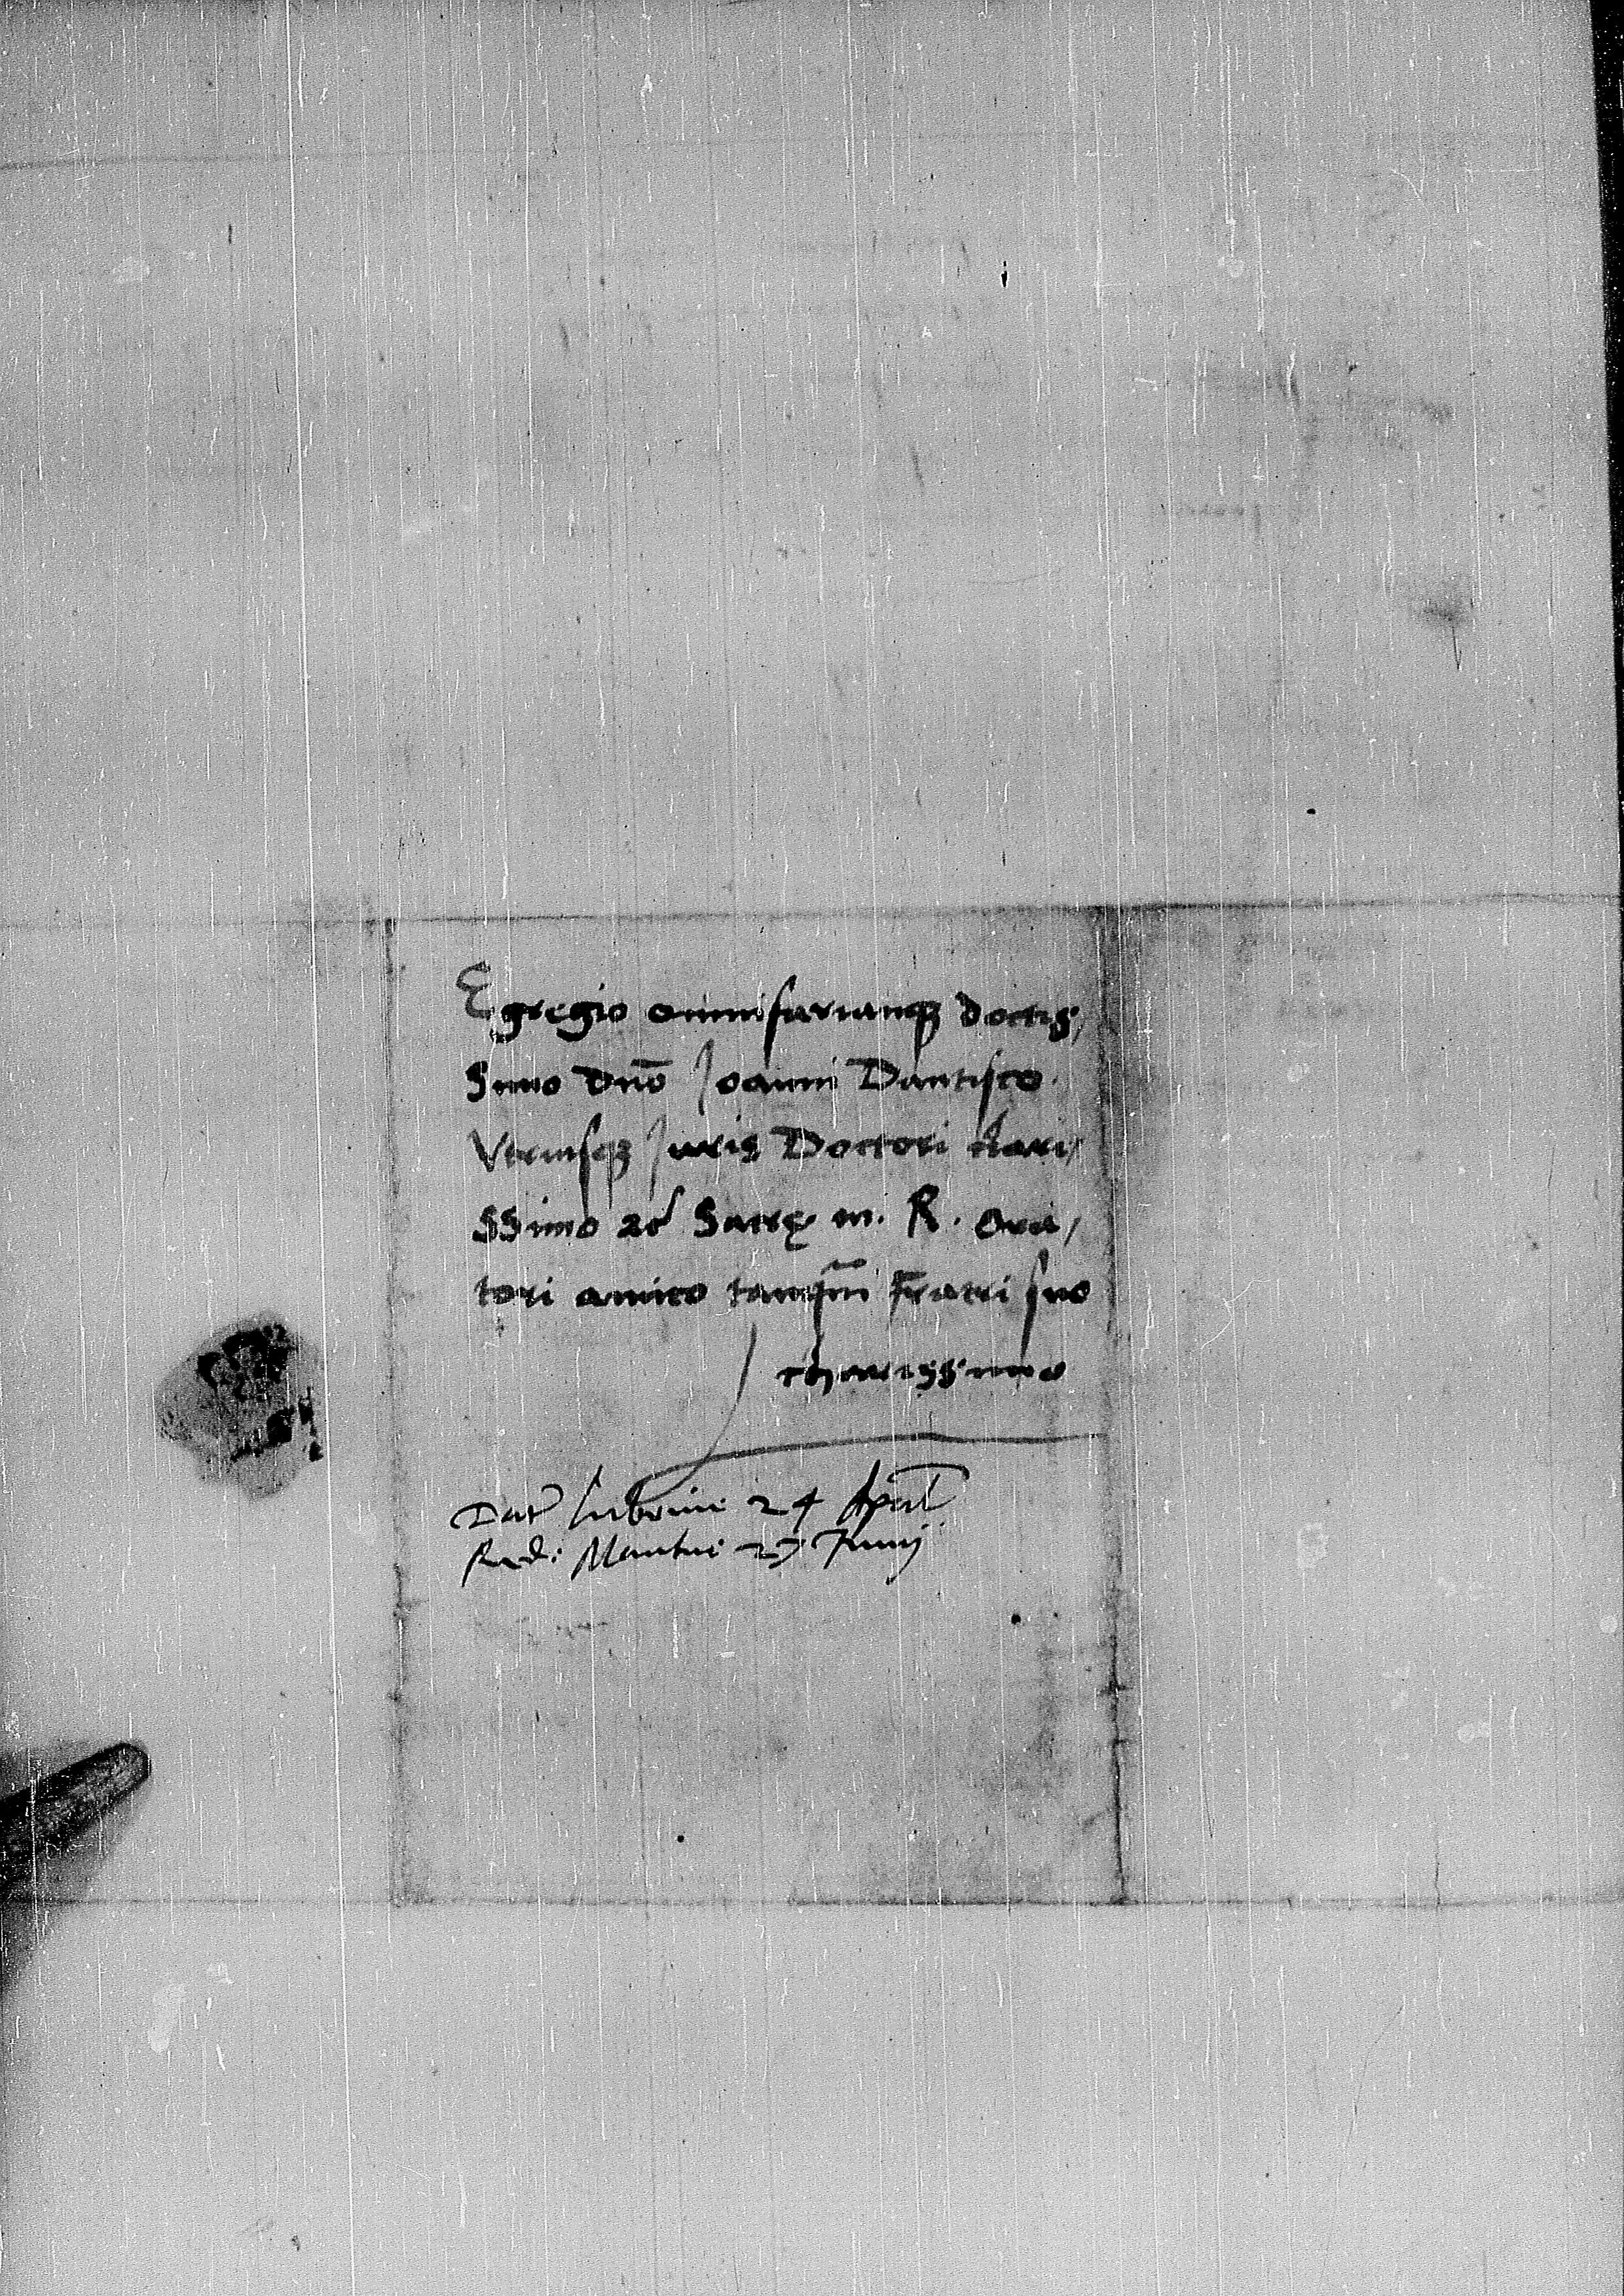 Egregio omnifariamqꝫ doctis,
Simo dn̄o Joanni Dantisco.
Vtriusqꝫ Juris Doctori clari,
SSimo ac Sacrę m. R. Ora,
tori amico tamqm̄ fratri suo
charissimo
Dat 24 April
Red: Mantue 27 Junij